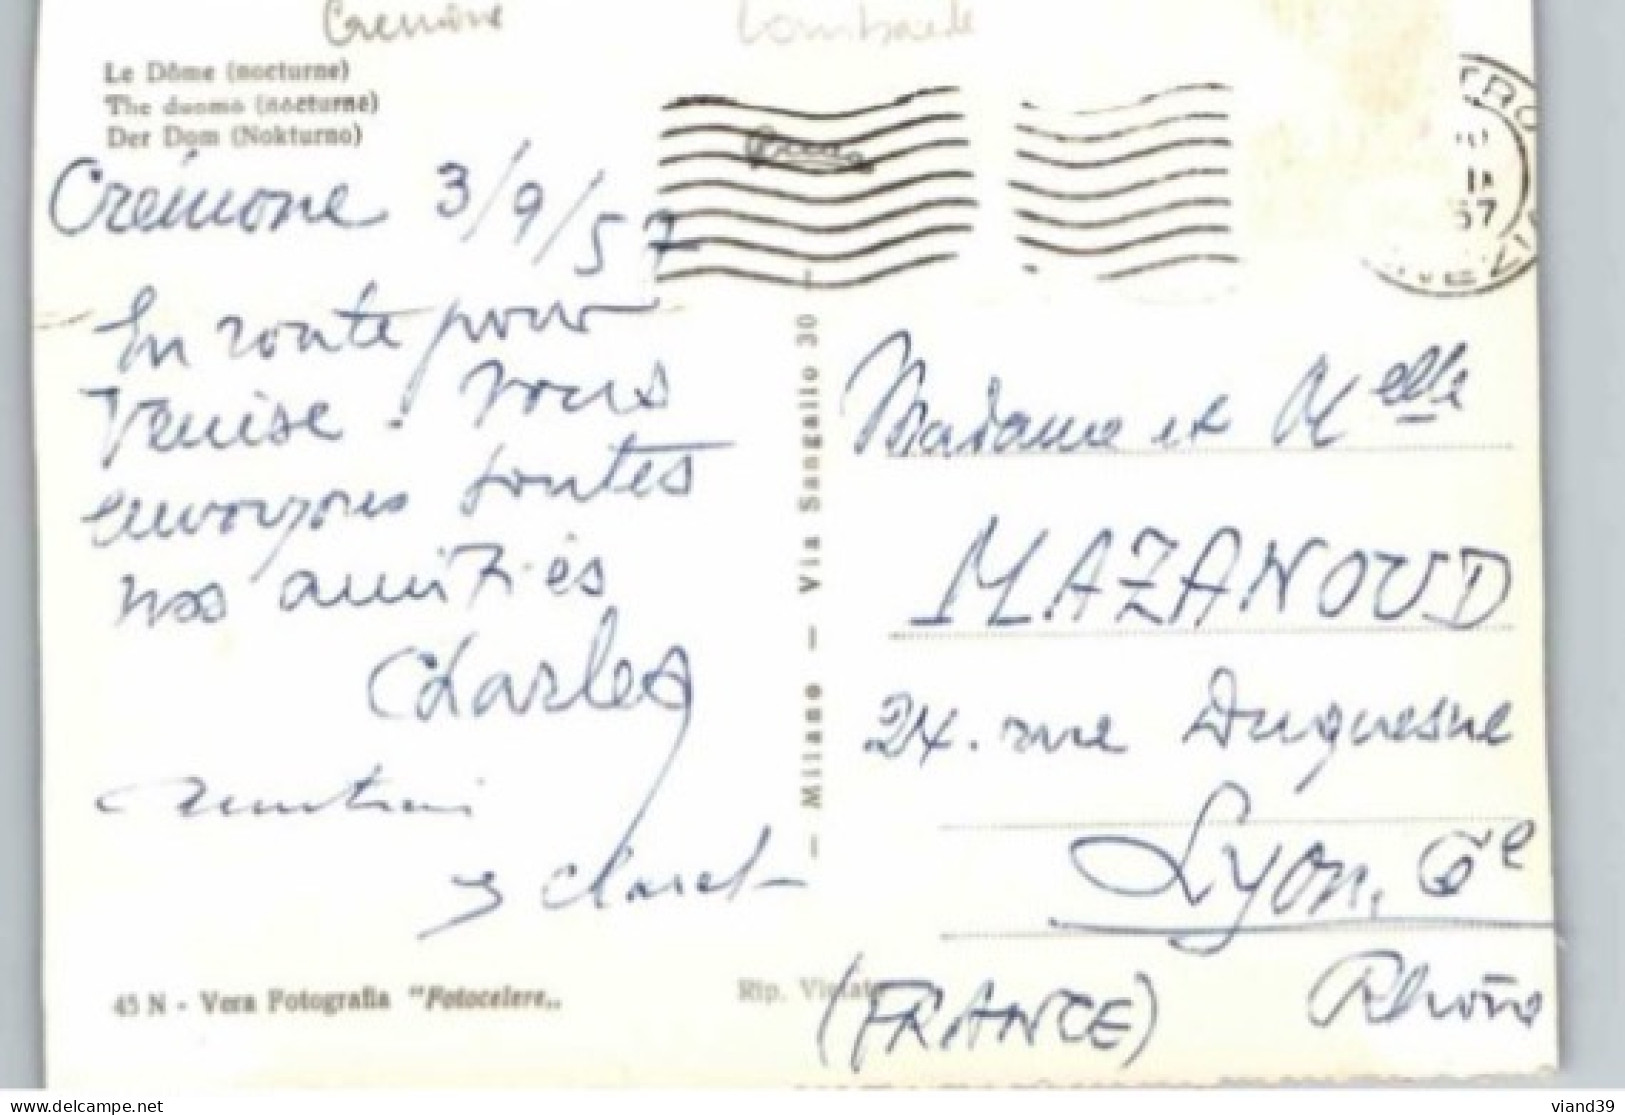 Cremone Lombardie
Le Dôme (nocturne)
The duomo (nocturne)
Der Dom (Nokturno)
Crémone 3/9/57
En route pour
Venise. Nous
envoyons toutes
nos amitiés
Charles
J Claret
45 N - Vera Fotografia "Fotocelere„
Rip. Vietata
— Milano — Via Sangallo 30 —
57
Madame et Melle
MAZANOUD
24. rue Duquesne
Lyon, 6e
(FRANCE) Rhône
viand39